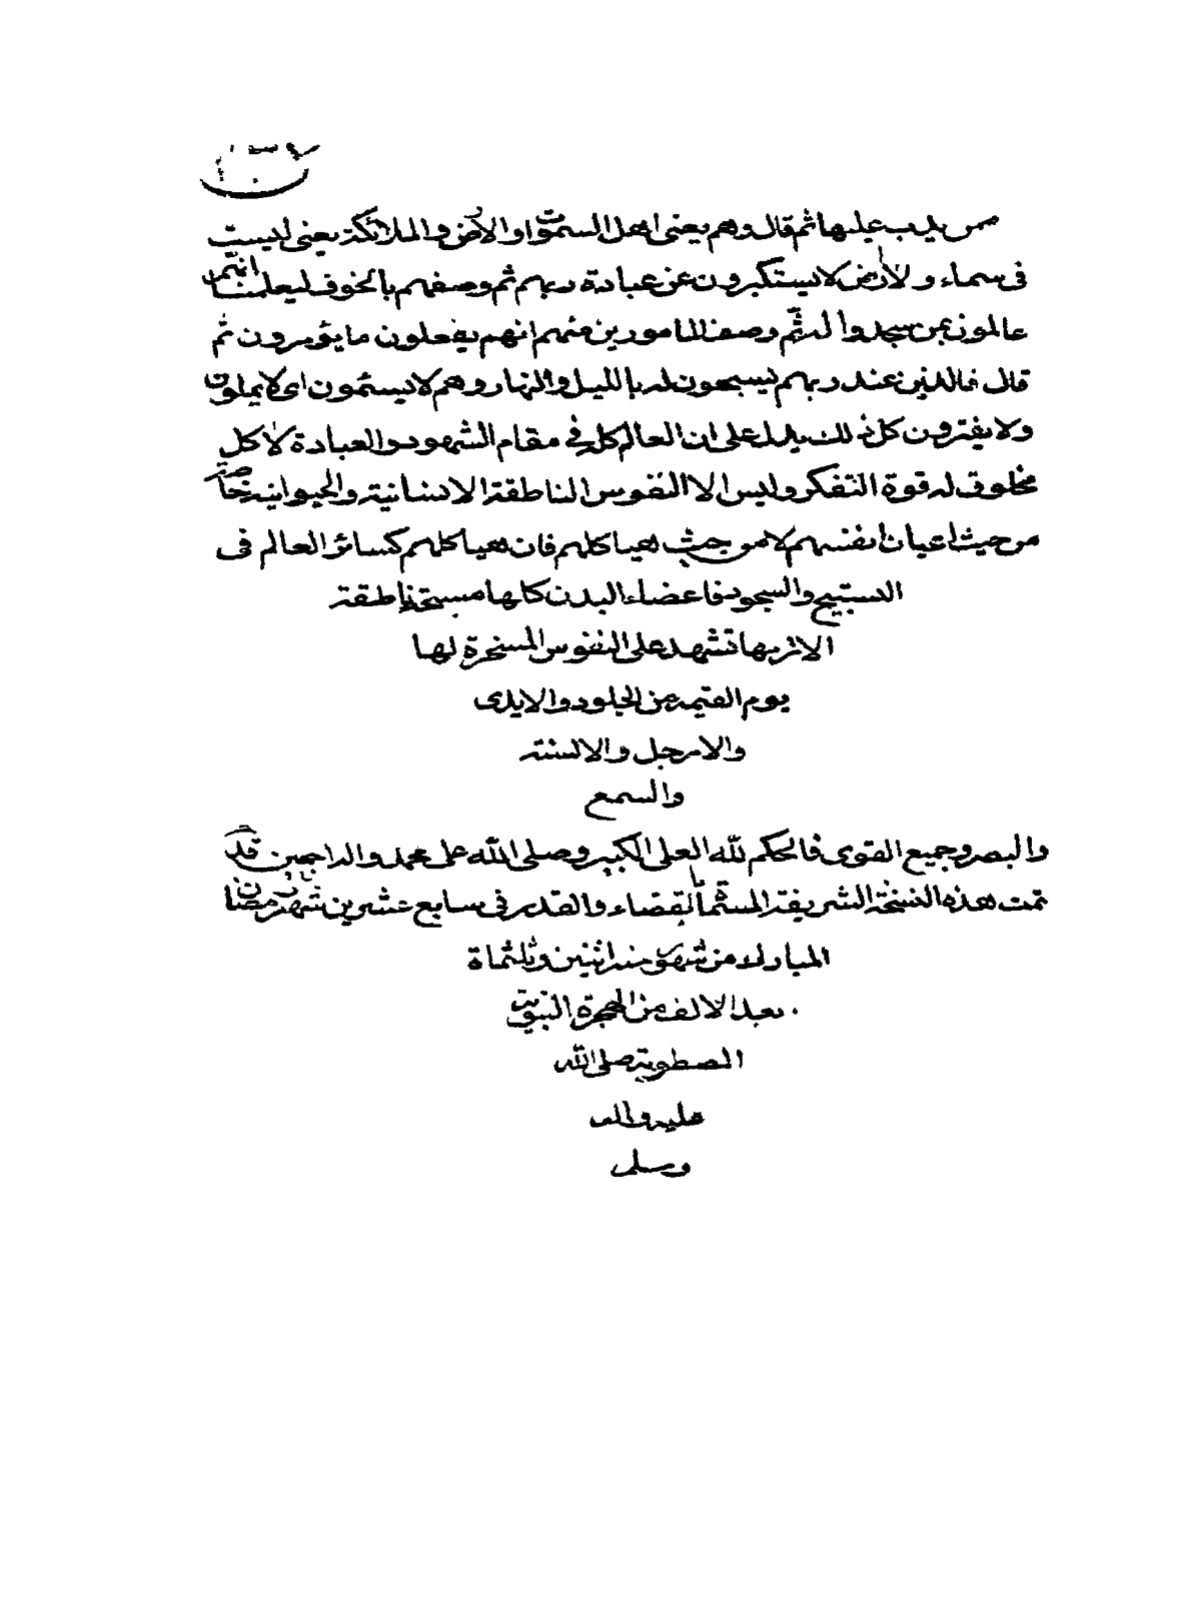 ممن يدب عليها ثم قال وهم يعنى اهل السموات والارض والملائكة يعنى ليست
فى سماء ولا ارض لا يستكبرون عن عبادة ربهم ثم وصفهم بالخوف ليعلمنا انهم
عالمون بمن سجدوا له ثم وصف المامورين منهم انهم يفعلون ما يؤمرون ثم
قال فالذين عند ربهم يسبحون له بالليل والنهار وهم لا يسئمون اى لا يملون
ولا يفترون كل ذلك يدل على ان العالم كله فى مقام الشهود والعبادة الا كل
مخلوق له قوة التفكر وليس الا النفوس الناطقة الانسانية والحيوانية خاصة
من حيث اعيان انفسهم لا من حيث هيا كلهم فان هيا كلهم كسائر العالم فى
التسبيح والسجود فاعضاء البدن كلها مسبحة ناطقة
الا تريها تشهد على النفوس المسخرة لها
يوم القيمة من الجلود والايدى
والارجل والالسنة
والسمع
والبصر وجميع القوى فالحكم لله العلى الكبير وصلى الله على محمد واله اجمعين قد
تمت هذه النسخة الشريفة المسماة بالقضاء والقدر فى سابع عشرين شهر رمضان
المبارك من شهور سنه اثنين وثلثماة
بعد الالف من الهجرة النبوية
المصطوية صلى الله
عليه واله
وسلم